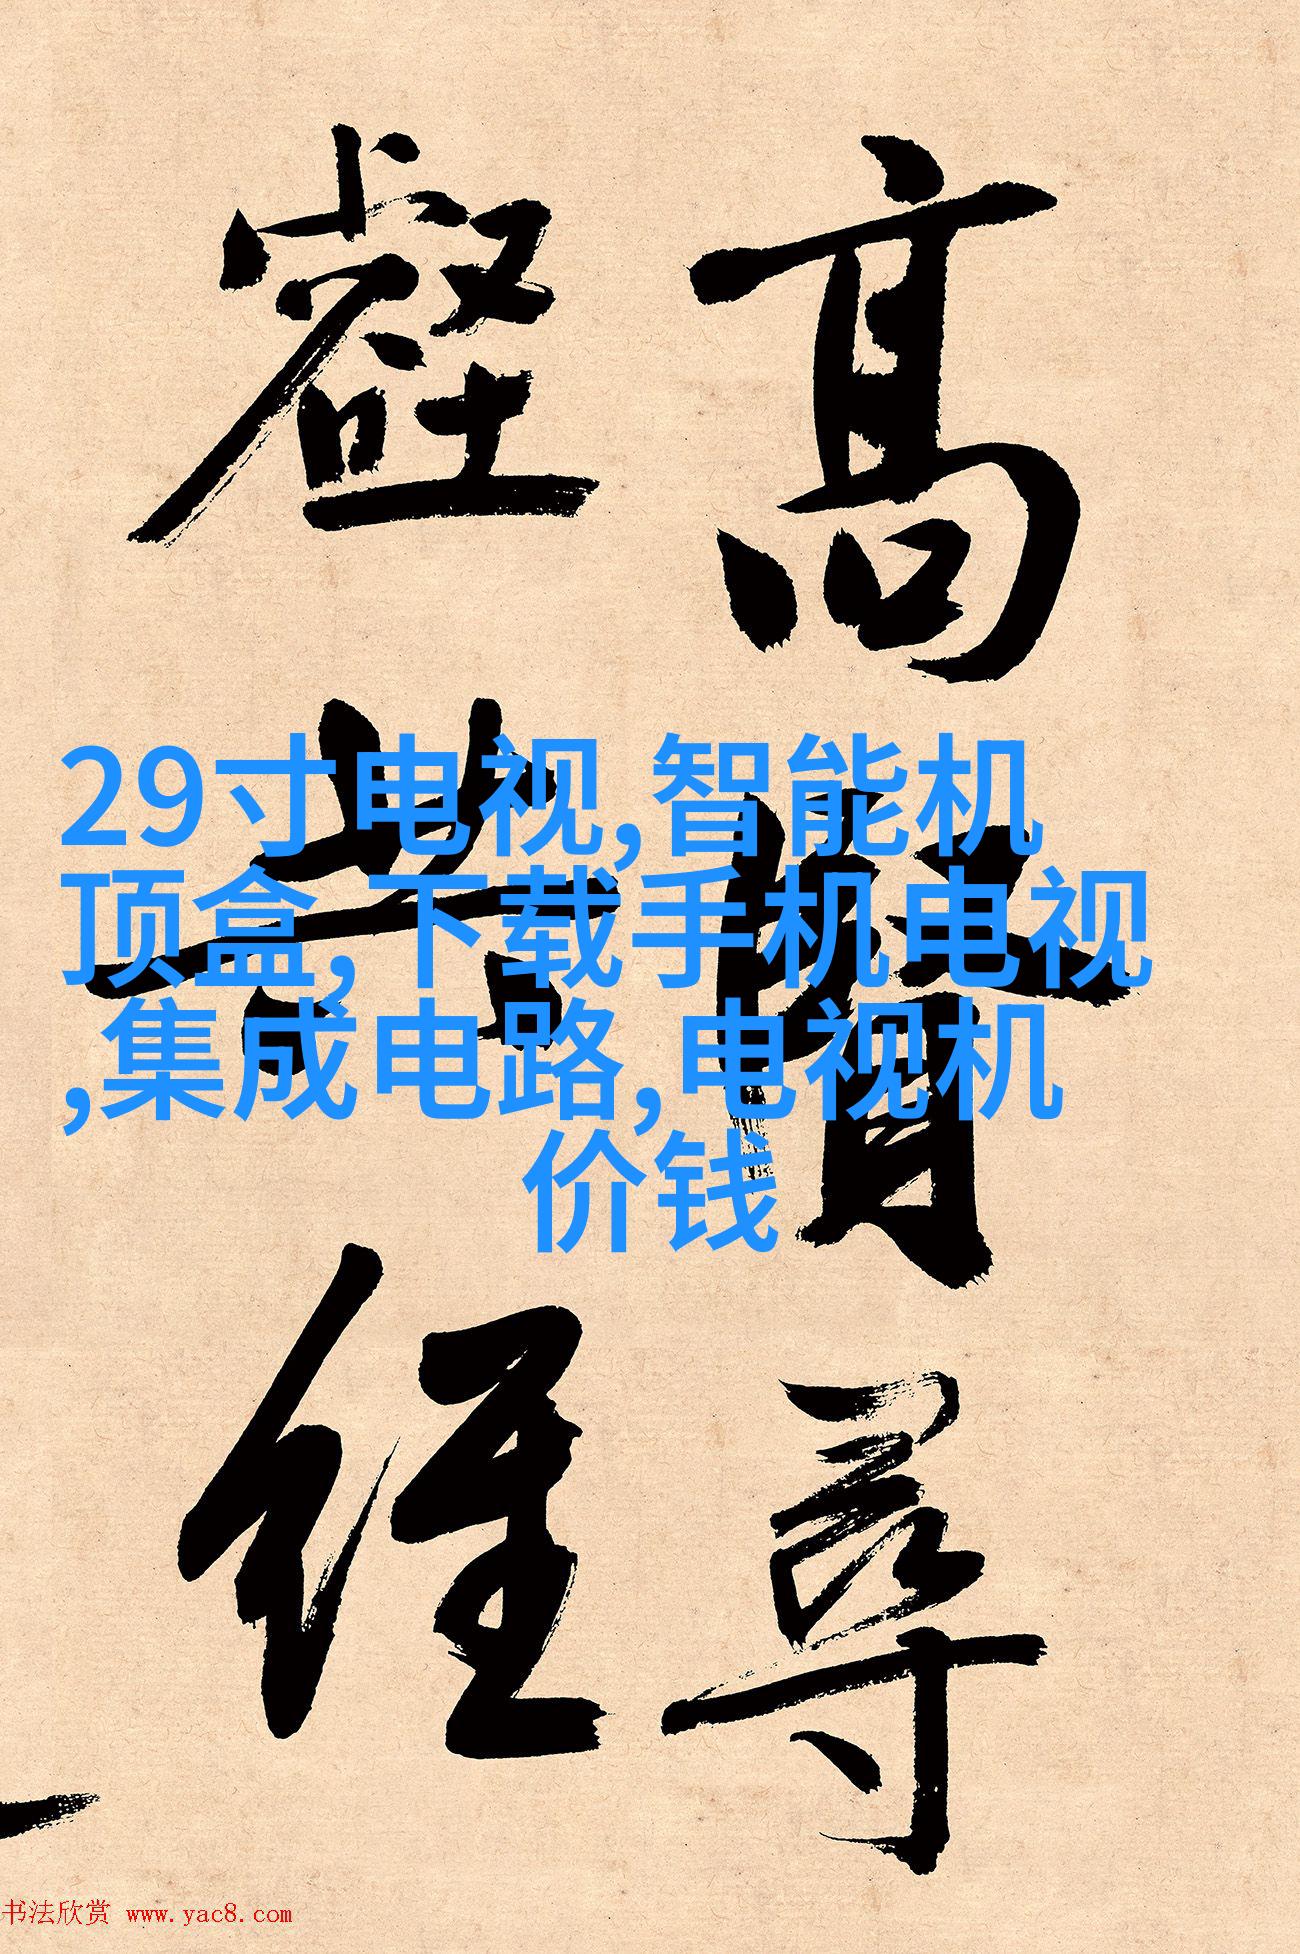 高賢尋
壑昔經
29寸电视,智能机
顶盒,下载手机电视
,集成电路,电视机
价钱
书法欣赏 www.yac8.com